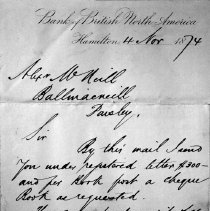 Bank of British North America
Hamilton, 4 Nov 1874
Alex McNeill
Ballmacneill
Paisley.
Sir
By this mail I send
You under registered letter $300—
and per Book post a cheque
Book as requested.